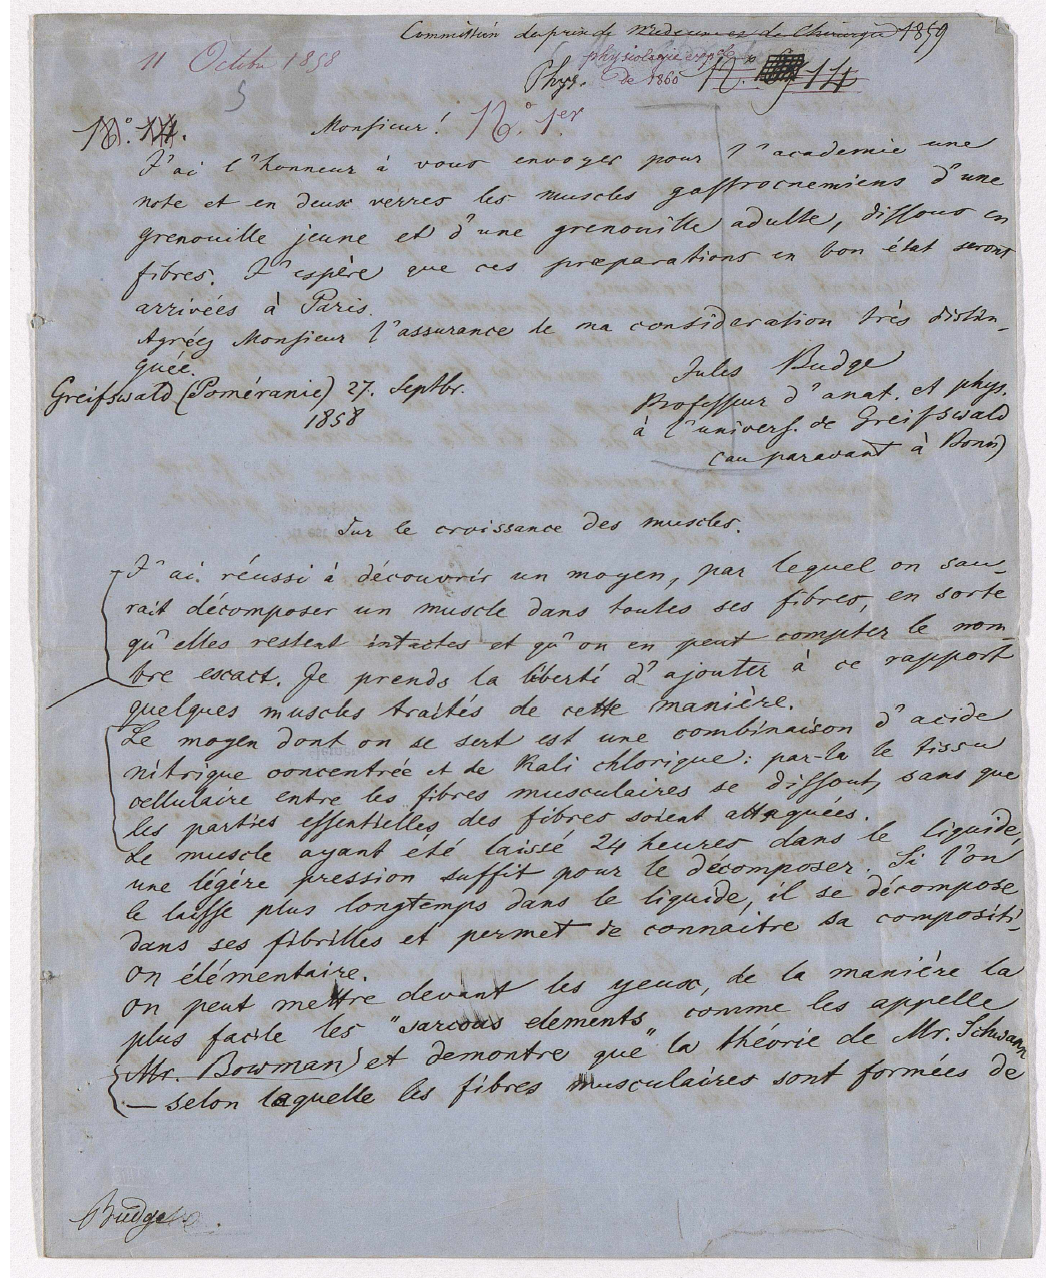 Commission du prix de medecine et de Chirurgie 1859
11 Octobre 1858
physiologie expˡᵉ
de 1860
Phys. N.° 14
5
N.° 14.
Monsieur! N.° 1er
J'ai l'honneur à vous envoyer pour l'academie une
note et en deux verres les muscles gastrocnemiens d'une
grenouille jeune et d'une grenouille adulte, dissous en
fibres. J'espère que ces præparations en bon état seront
arrivées à Paris.
Agréez Monsieur l'assurance de ma consideration très distin-
guée.
Jules Budge
Greifswald (Poméranie) 27. Septbr.
1858
Professeur d'anat. et phys.
à l'univers. de Greifswald
(au paravant à Bonn)
Sur le croissance des muscles.
J'ai réussi à découvrir un moyen, par lequel on sau-
rait décomposer un muscle dans toutes ses fibres, en sorte
qu'elles restent intactes et qu'on en peut compter le nom-
bre escact. Je prends la liberté d'ajouter à ce rapport
quelques muscles traités de cette manière.
Le moyen dont on se sert est une combinaison d'acide
nitrique concentrée et de Kali chlorique; par-la le tissu
cellulaire entre les fibres musculaires se dissout, sans que
les parties essentielles des fibres soient attaquées.
Le muscle ayant été laissé 24 heures dans le liquide,
une légére pression suffit pour le décomposer. Si l'on
le laisse plus longtemps dans le liquide, il se décompose
dans ses fibrilles et permet de connaitre sa compositi-
on élémentaire.
On peut mettre devant les yeux, de la maniére la
plus facile les "sarcous elements" comme les appelle
Mr. Bowman) et demontre que la théorie de Mr. Schwann
— selon laquelle les fibres musculaires sont formées de
Budge